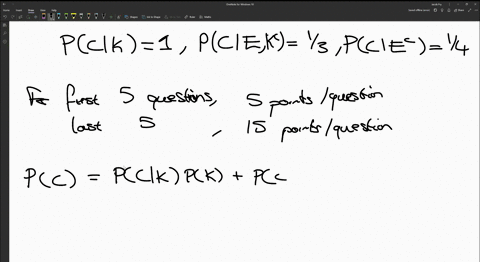 P(C|K) = 1 , P(C|E,Kᶜ) = 1/3 , P(C|Eᶜ) = 1/4
first 5 questions, 5 points/question
last 5 , 15 points/question
P(C) = P(C|K) P(K) + P(C